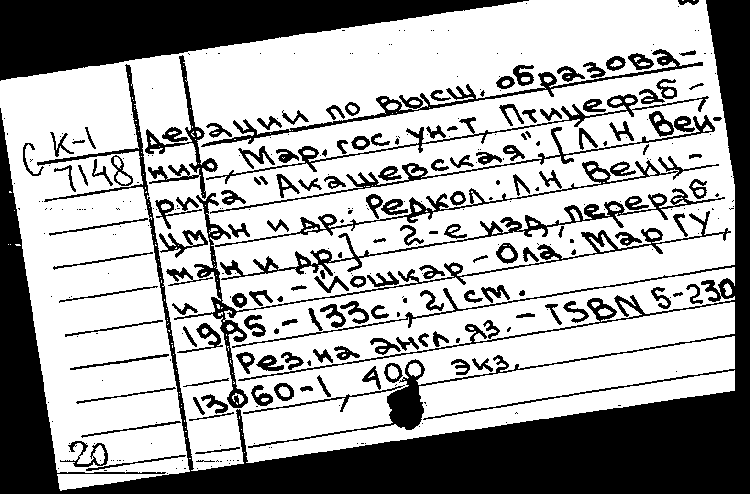 С К-1
7148
дерации по высш. образова-
нию, Мар. гос. ун-т, Птицефаб-
рика "Акашевская"; [Л.Н. Вей-
цман и др.; Редкол.: Л.Н. Вейц-
ман и др.]. - 2-е изд., перераб.
и доп. - Йошкар-Ола: МарГУ,
1995. - 133с.; 21см.
Рез. на англ. яз. - ISBN 5-230
13060-1, 400 экз.
20